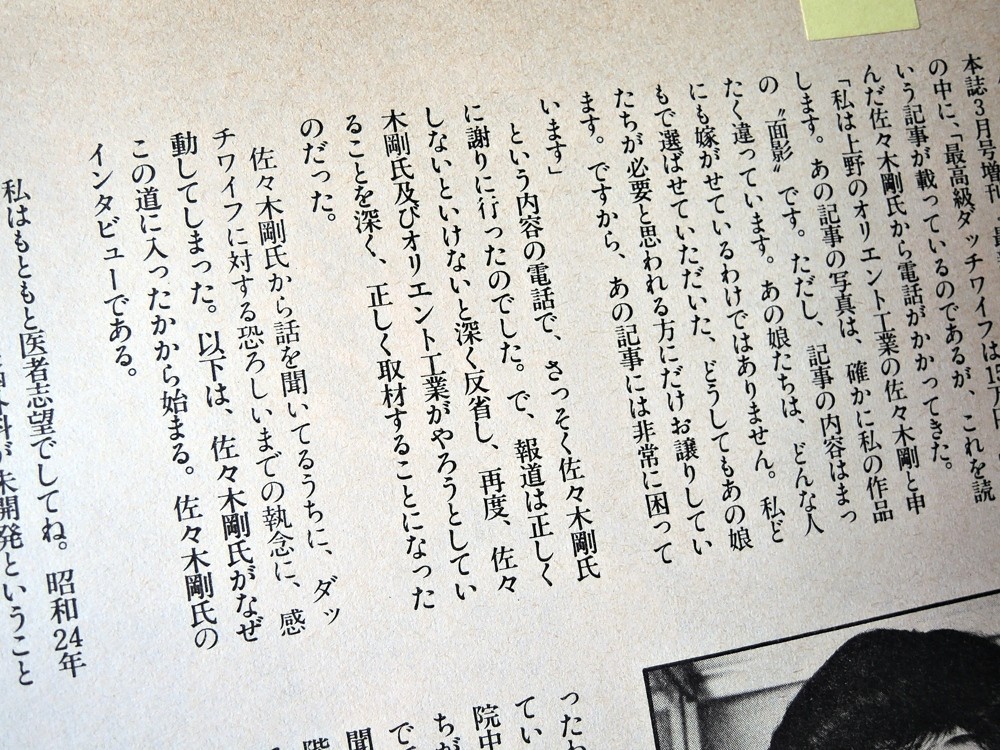 本誌3月号増刊
の中に、「最高級ダッチワイフは15万円
いう記事が載っているのであるが、これを読
んだ佐々木剛氏から電話がかかってきた。
「私は上野のオリエント工業の佐々木剛と申
します。あの記事の写真は、確かに私の作品
の〝面影〟です。ただし、記事の内容はまっ
たく違っています。あの娘たちは、どんな人
にも嫁がせているわけではありません。私ど
もで選ばせていただいた、どうしてもあの娘
たちが必要と思われる方にだけお譲りしてい
ます。ですから、あの記事には非常に困って
います」
という内容の電話で、さっそく佐々木剛氏
に謝りに行ったのでした。で、報道は正しく
しないといけないと深く反省し、再度、佐々
木剛氏及びオリエント工業がやろうとしてい
ることを深く、正しく取材することになった
のだった。
佐々木剛氏から話を聞いてるうちに、ダッ
チワイフに対する恐ろしいまでの執念に、感
動してしまった。以下は、佐々木剛氏がなぜ
この道に入ったかから始まる。佐々木剛氏の
インタビューである。
私はもともと医者志望でしてね。昭和24年
科が未開発ということ
ったわ
てい
院中
ちが
で
聞
階